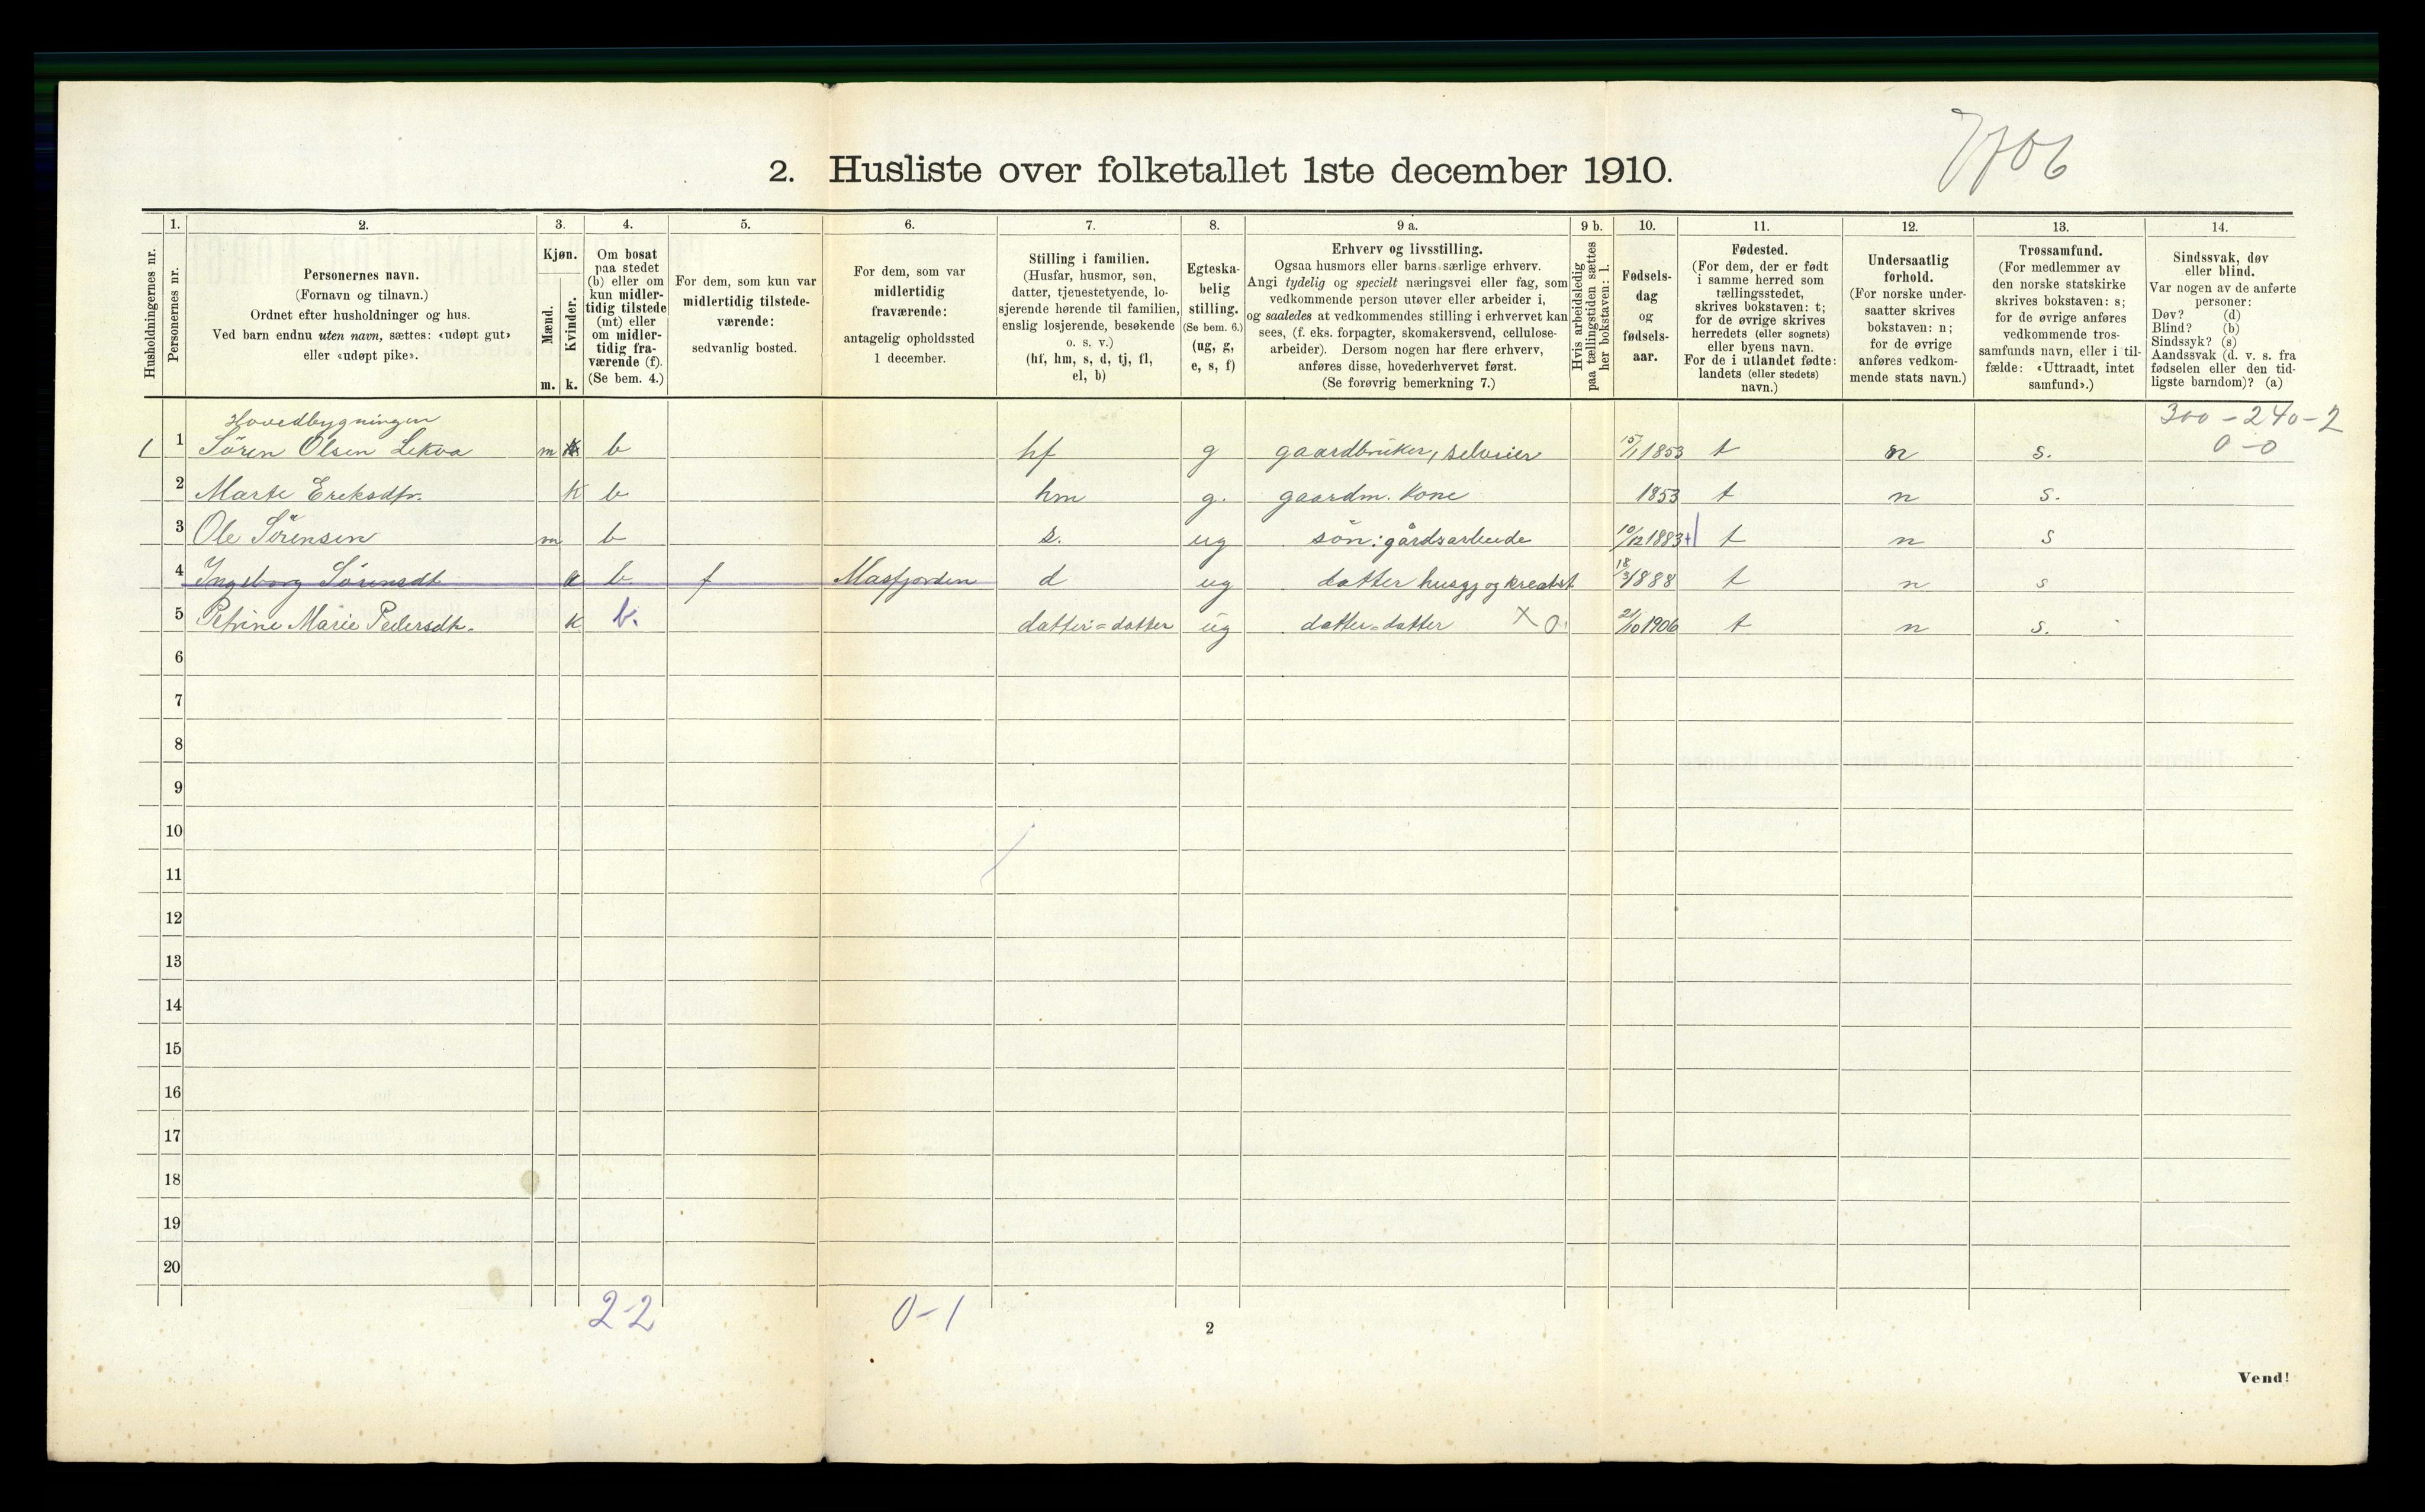 7706
2. Husliste over folketallet 1ste december 1910.
Husholdningernes nr.
1.
Personernes nr.
2.
Personernes navn.
(Fornavn og tilnavn.)
Ordnet efter husholdninger og hus.
Ved barn endnu uten navn, sættes: «udøpt gut»
eller «udøpt pike».
3.
Kjøn.
Mænd.
Kvinder.
m. k.
4.
Om bosat
paa stedet
(b) eller om
kun midler-
tidig tilstede
(mt) eller
om midler-
tidig fra-
værende (f).
(Se bem. 4.)
5.
For dem, som kun var
midlertidig tilstede-
værende:
sedvanlig bosted.
6.
For dem, som var
midlertidig
fraværende:
antagelig opholdssted
1 december.
7.
Stilling i familien.
(Husfar, husmor, søn,
datter, tjenestetyende, lo-
sjerende hørende til familien,
enslig losjerende, besøkende
o. s. v.)
(hf, hm, s, d, tj, fl,
el, b)
8.
Egteska-
belig
stilling.
(Se bem. 6.)
(ug, g,
e, s, f)
9 a.
Erhverv og livsstilling.
Ogsaa husmors eller barns særlige erhverv.
Angi tydelig og specielt næringsvei eller fag, som
vedkommende person utøver eller arbeider i,
og saaledes at vedkommendes stilling i erhvervet kan
sees, (f. eks. forpagter, skomakersvend, cellulose-
arbeider). Dersom nogen har flere erhverv,
anføres disse, hovederhvervet først.
(Se forøvrig bemerkning 7.)
9 b.
Hvis arbeidsledig
paa tællingstiden sættes
her bokstaven: l.
10.
Fødsels-
dag
og
fødsels-
aar.
11.
Fødested.
(For dem, der er født
i samme herred som
tællingsstedet,
skrives bokstaven: t;
for de øvrige skrives
herredets (eller sognets)
eller byens navn.
For de i utlandet fødte:
landets (eller stedets)
navn.)
12.
Undersaatlig
forhold.
(For norske under-
saatter skrives
bokstaven: n;
for de øvrige
anføres vedkom-
mende stats navn.)
13.
Trossamfund.
(For medlemmer av
den norske statskirke
skrives bokstaven: s;
for de øvrige anføres
vedkommende tros-
samfunds navn, eller i til-
fælde: «Uttraadt, intet
samfund».)
14.
Sindssvak, døv
eller blind.
Var nogen av de anførte
personer:
Døv? (d)
Blind? (b)
Sindssyk? (s)
Aandssvak (d. v. s. fra
fødselen eller den tid-
ligste barndom)? (a)
300-240-2
0-0
Hovedbygningen
1 1 Sören Olsen Lekva m k b hf g gaardbruker, selveier 15/1 1853 t n s.
2 Marte Ereksdtr. k b hm g. gaardm. kone 1853 t n s.
3 Ole Sörensen m b s. ug sön: gårdsarbeide 10/12 1883 t n s
4 Ingeborg Sörensdt k b f Masfjorden d ug datter husgj og kreatst 18/3 1888 t n s
5 Petrine Marie Pedersdtr. k b. datter=datter ug datter=datter x 0 21/10 1906 t n s.
6
7
8
9
10
11
12
13
14
15
16
17
18
19
20
2-2 0-1
2
Vend!